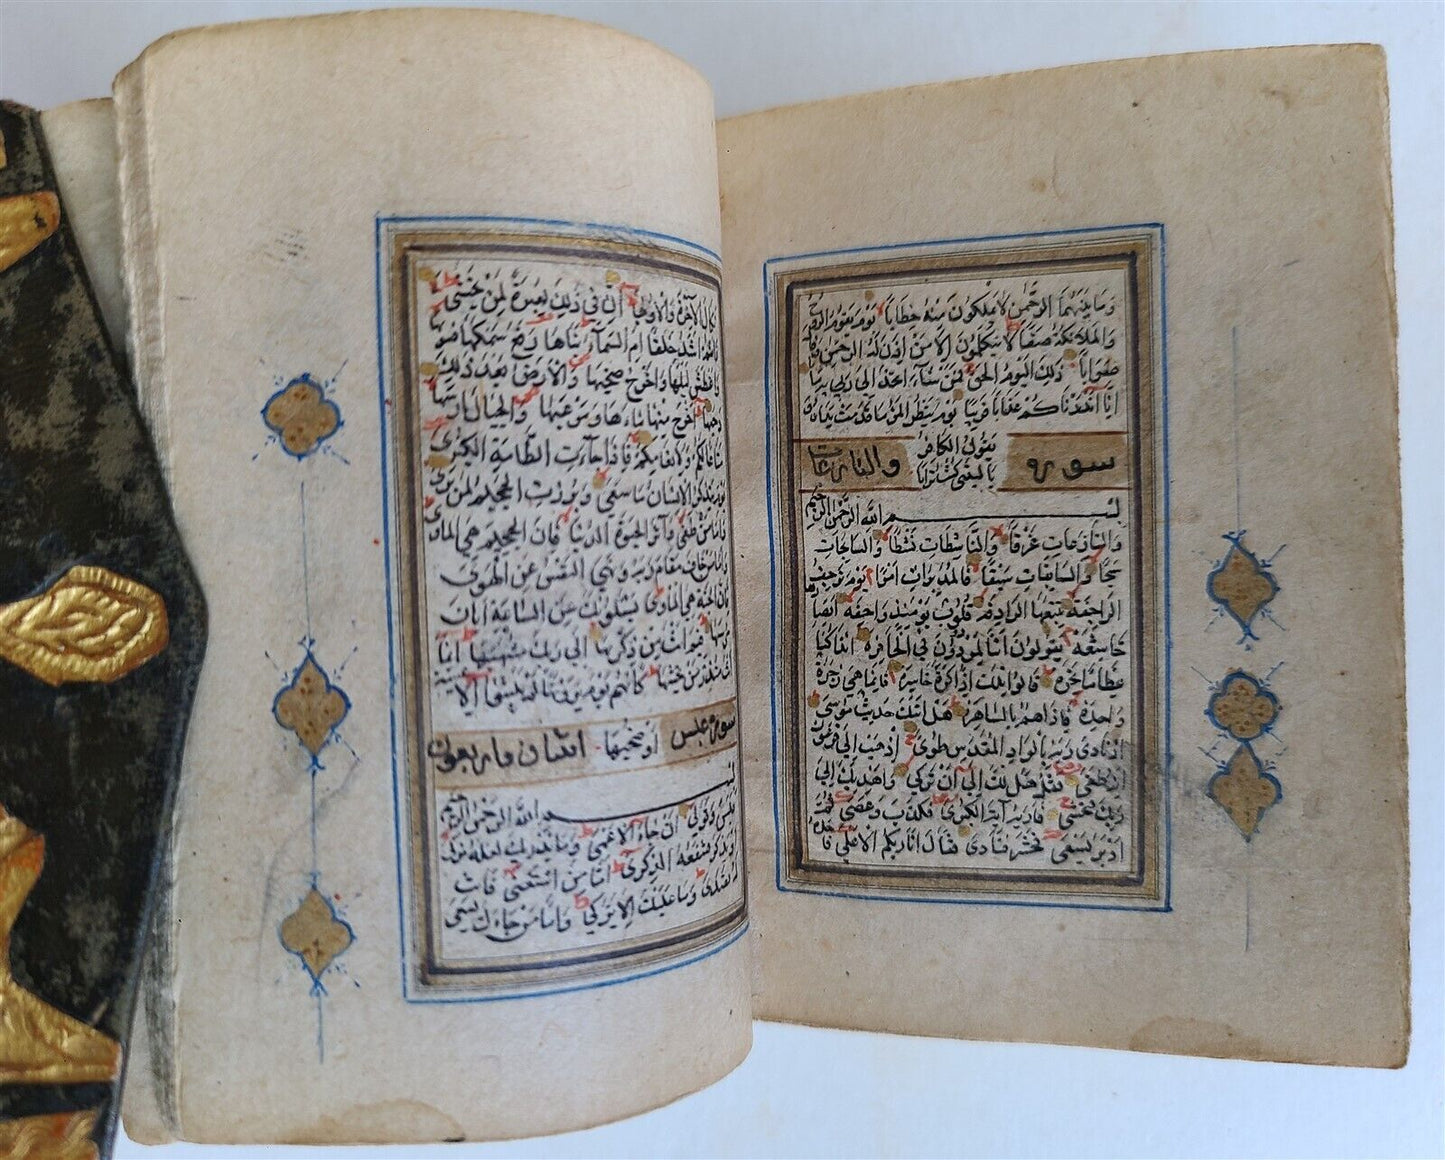 وما بينهما الرحمن لا يملكون منه خطابا يوم يقوم الروح
والملائكة صفا لا يتكلمون الا من اذن له الرحمن وقال
صوابا ذلك اليوم الحق فمن شاء اتخذ الى ربه مابا
انا انذرناكم عذابا قريبا يوم ينظر المرء ما قدمت يداه و
يقول الكافر
سورة والنازعات
يا ليتني كنت ترابا
بسم الله الرحمن الرحيم
والنازعات غرقا والناشطات نشطا والسابحات
سبحا والسابقات سبقا فالمدبرات امرا يوم ترجف
الراجفة تتبعها الرادفة قلوب يومئذ واجفة ابصارها
خاشعة يقولون أئنا لمردودون في الحافرة ائذا كنا
عظاما نخرة قالوا تلك اذا كرة خاسرة فانما هي زجرة
واحدة فاذا هم بالساهرة هل اتيك حديث موسى
اذ نادى ربه بالواد المقدس طوى اذهب الى فرعون
انه طغى فقل هل لك الى ان تزكى واهديك الى
ربك فتخشى فاريه آية الكبرى فكذب وعصى ثم
ادبر يسعى فحشر فنادى فقال انا ربكم الاعلى فاخذه
نكال الآخرة والاولى ان في ذلك لعبرة لمن يخشى
ءانتم اشد خلقا ام السماء بناها رفع سمكها فسويها
واغطش ليلها واخرج ضحيها والارض بعد ذلك
دحيها اخرج منها ماءها ومرعيها والجبال ارسيها
متاعا لكم ولانعامكم فاذا جاءت الطامة الكبرى
يوم يتذكر الانسان ما سعى وبرزت الجحيم لمن يرى
فاما من طغى وآثر الحيوة الدنيا فان الجحيم هي الماوى
واما من خاف مقام ربه ونهى النفس عن الهوى
فان الجنة هي الماوى يسئلونك عن الساعة ايان
مرسيها فيم انت من ذكريها الى ربك منتهيها انما
انت منذر من يخشيها كانهم يوم يرونها لم يلبثوا الا عشية
سورة عبس او ضحيها اثنتان واربعون
بسم الله الرحمن الرحيم
عبس وتولى ان جاءه الاعمى وما يدريك لعله يزكى
او يذكر فتنفعه الذكرى اما من استغنى فانت
له تصدى وما عليك الا يزكى واما من جاءك يسعى